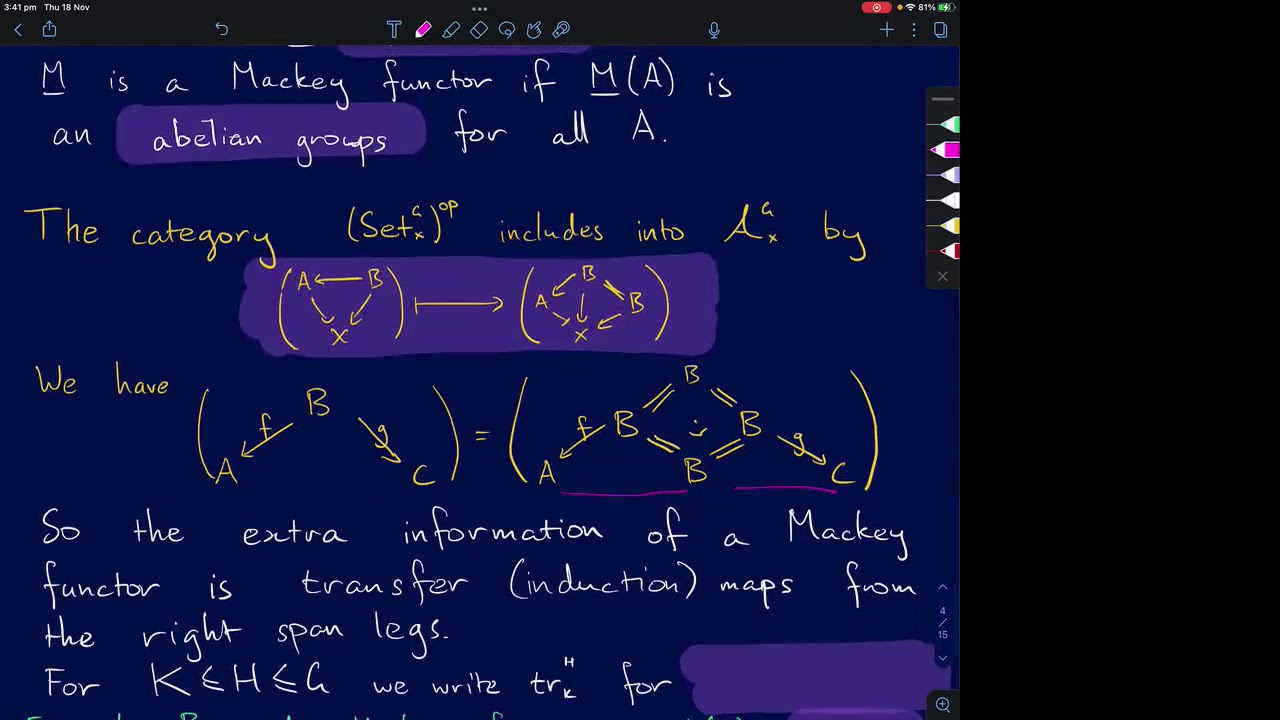 3:41 pm Thu 18 Nov
81%
M is a Mackey functor if M(A) is
an abelian groups for all A.
The category (Set_X^G)^op includes into A_X^G by
(A ← B → X) ↦ (A B B X)
We have (A f B g C) = (A f B B B B g C)
So the extra information of a Mackey
functor is transfer (induction) maps from
the right span legs.
For K ≤ H ≤ G we write tr_K^H for
4
/
15